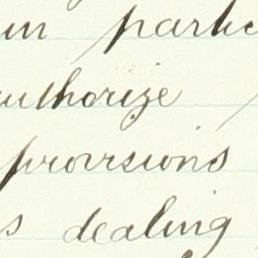 in partic
authorize
provisions
s dealing